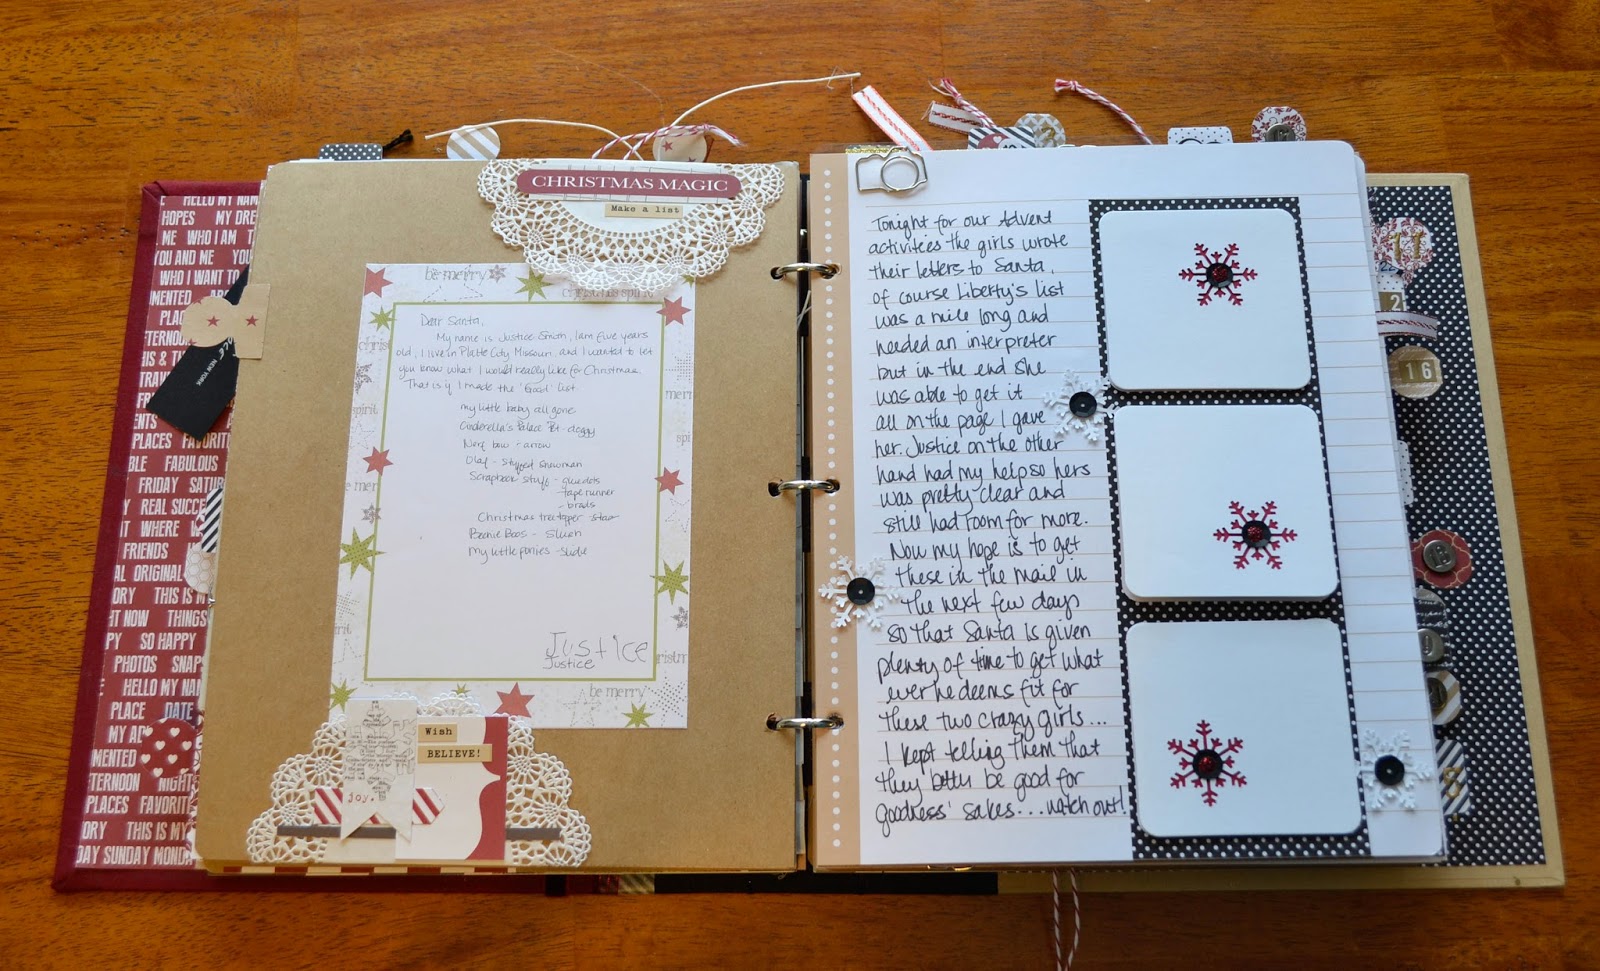 CHRISTMAS MAGIC
Make a list
be merry
christmas spirit
Dear Santa,
My name is Justice Smith, I am five years
old, I live in Platte City Missouri and I wanted to let
you know what I would really like for Christmas.
That is if I made the "Good" list.
my little baby all gone
Cinderella's Palace Pet - doggy
Nerf bow - arrow
Olaf - stuffed snowman
Scrapbook stuff - glue dots
- tape runner
- brads
Christmas tree topper - star
Beanie Boos - Slush
My little ponies -
Justice
Justice
be merry
Wish
BELIEVE!
joy.
Tonight for our Advent
activitees the girls wrote
their letters to Santa,
of course Liberty's list
was a mile long and
needed an interpreter
but in the end she
was able to get it
all on the page I gave
her. Justice on the other
hand had my help so hers
was pretty clear and
still had room for more.
Now my hope is to get
these in the mail in
the next few days
so that Santa is given
plenty of time to get what
ever he deems fit for
these two crazy girls...
I kept telling them that
they better be good for
goodness' sakes...watch out!
HELLO MY NAM
HOPES MY DRE
ME WHO I AM
YOU AND ME YOU
WHO I WANT TO
MENTED
AFTERNOON
HIS & TH
TRAV
PLACES FAVORIT
FABULOUS
FRIDAY SATUR
REAL SUCCE
WHERE
FRIENDS
ORIGINAL
ORY THIS IS MY
RIGHT NOW THINGS
SO HAPPY
PHOTOS SNAPS
HELLO MY NAM
PLACE DATE
MY AD
MENTED
AFTERNOON NIGHT
PLACES FAVORIT
ORY THIS IS MY
DAY SUNDAY MONDA
NEW YORK
11
22
2
16